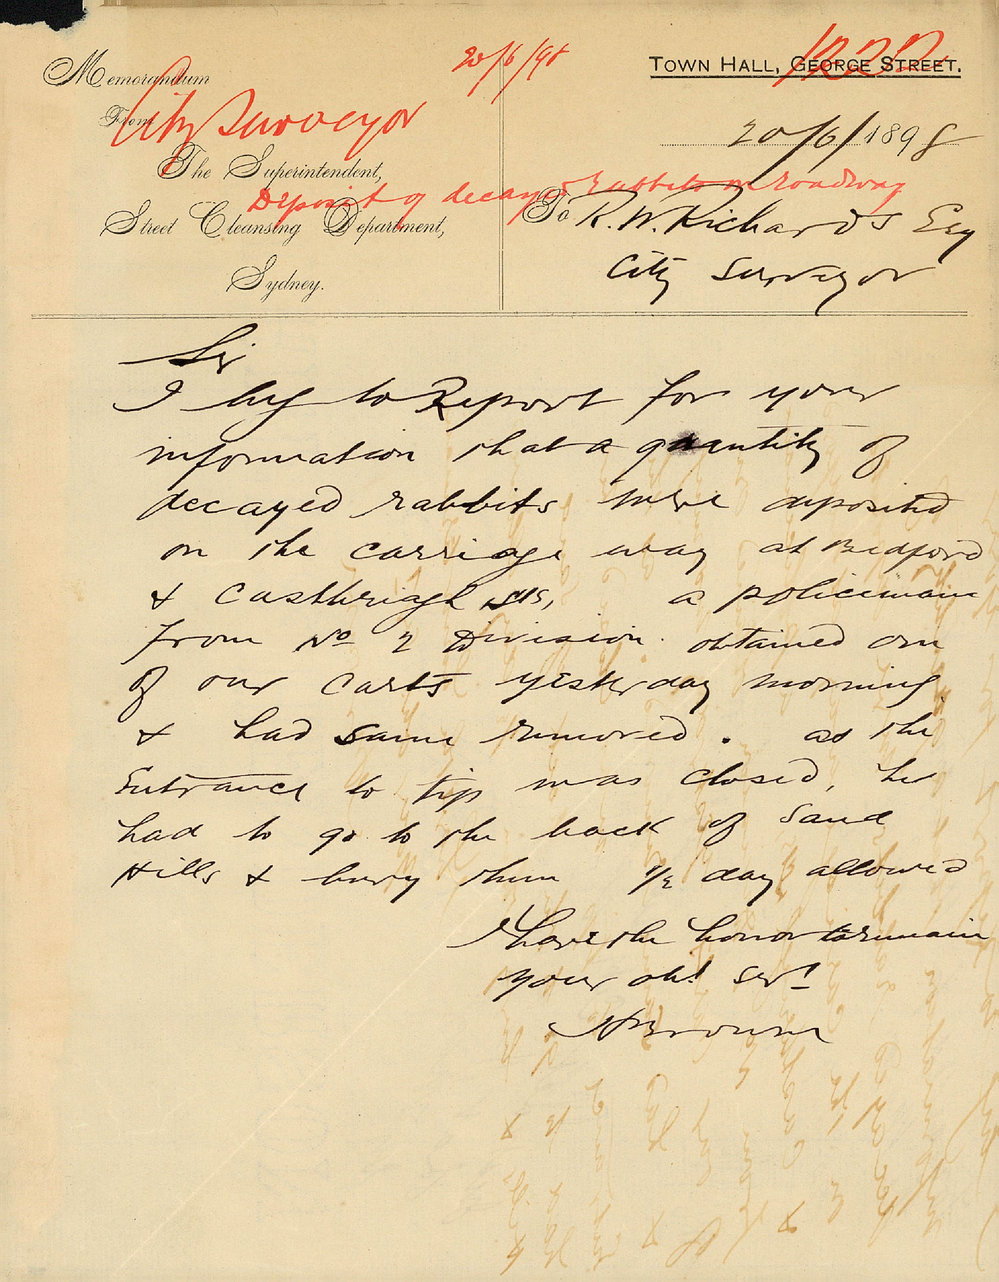 20/6/98
1222
Memorandum
TOWN HALL, GEORGE STREET.
From
City Surveyor
20/6/1898
The Superintendent,
Deposit of decayed rabbits on roadway
Street Cleansing Department,
To R.W. Richards Esq
City Surveyor
Sydney.
Sir
I beg to Report for your
information that a quantity of
decayed rabbits were deposited
on the carriage way at Bedford
& Castlereagh Sts, a policeman
from No 2 Division obtained one
of our carts yesterday morning
& had same removed. as the
Entrance to tip was closed, he
had to go to the back of Sand
Hills & bury them 1/2 day allowed
I have the honor to remain
your obt Servt
Brown